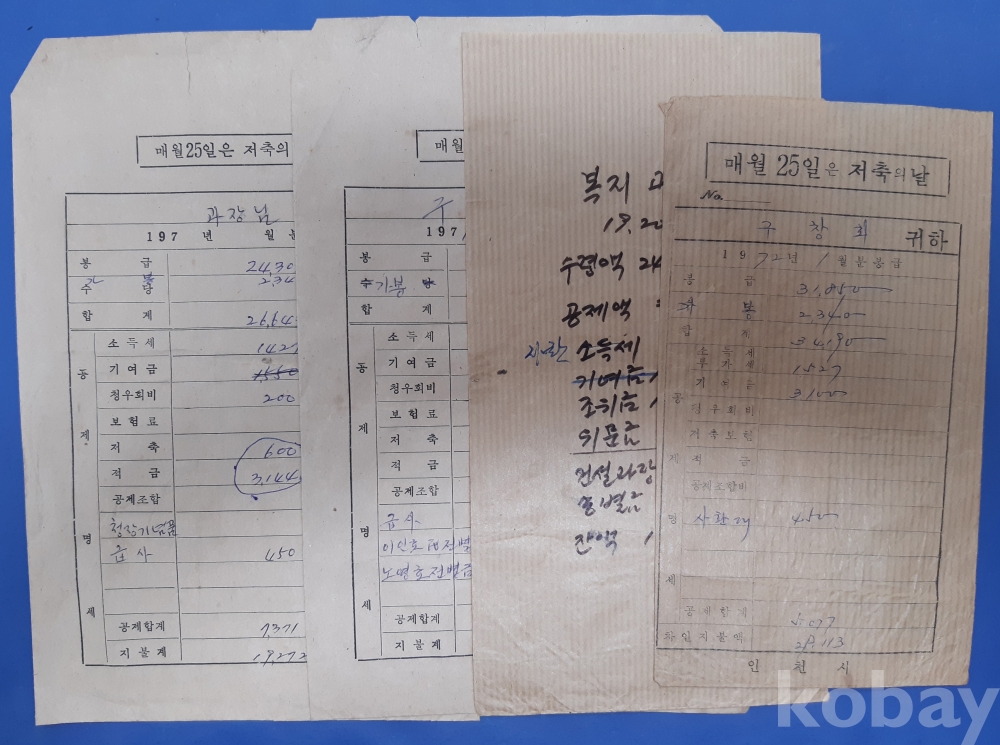 매월 25일은 저축의
과장님
197 년 월 분
봉급 24,30
수당 2,34
합계 26,64
소득세 1427
기여금 1550
청우회비 200
보험료
저축 600
적금 3,144
공제조합
청장기념품
급사 450
공제합계 7,371
지불계 19,272
동
제
명
세
매월
구
197
봉급
수당 기본
합계
동
제
명
세
소득세
기여금
청우회비
보험료
저축
적금
공제조합
급사
이인호
노명호전별금
공제합계
지불계
복지
19.20
수령액 24
공제액
소득세
기여금
조위금
위문금
건설과장
송별금
잔액
매월 25일은 저축의날
No.
구창회 귀하
1972년 1월분봉급
봉급 31,850
2,340
합계 34,190
소득세
부가세 1527
기여금 3100
공
청우회비
저축보험
제
적금
공제조합비
명
사환대 450
세
공제합계 5,077
차인지불액 29,113
인천시
kobay